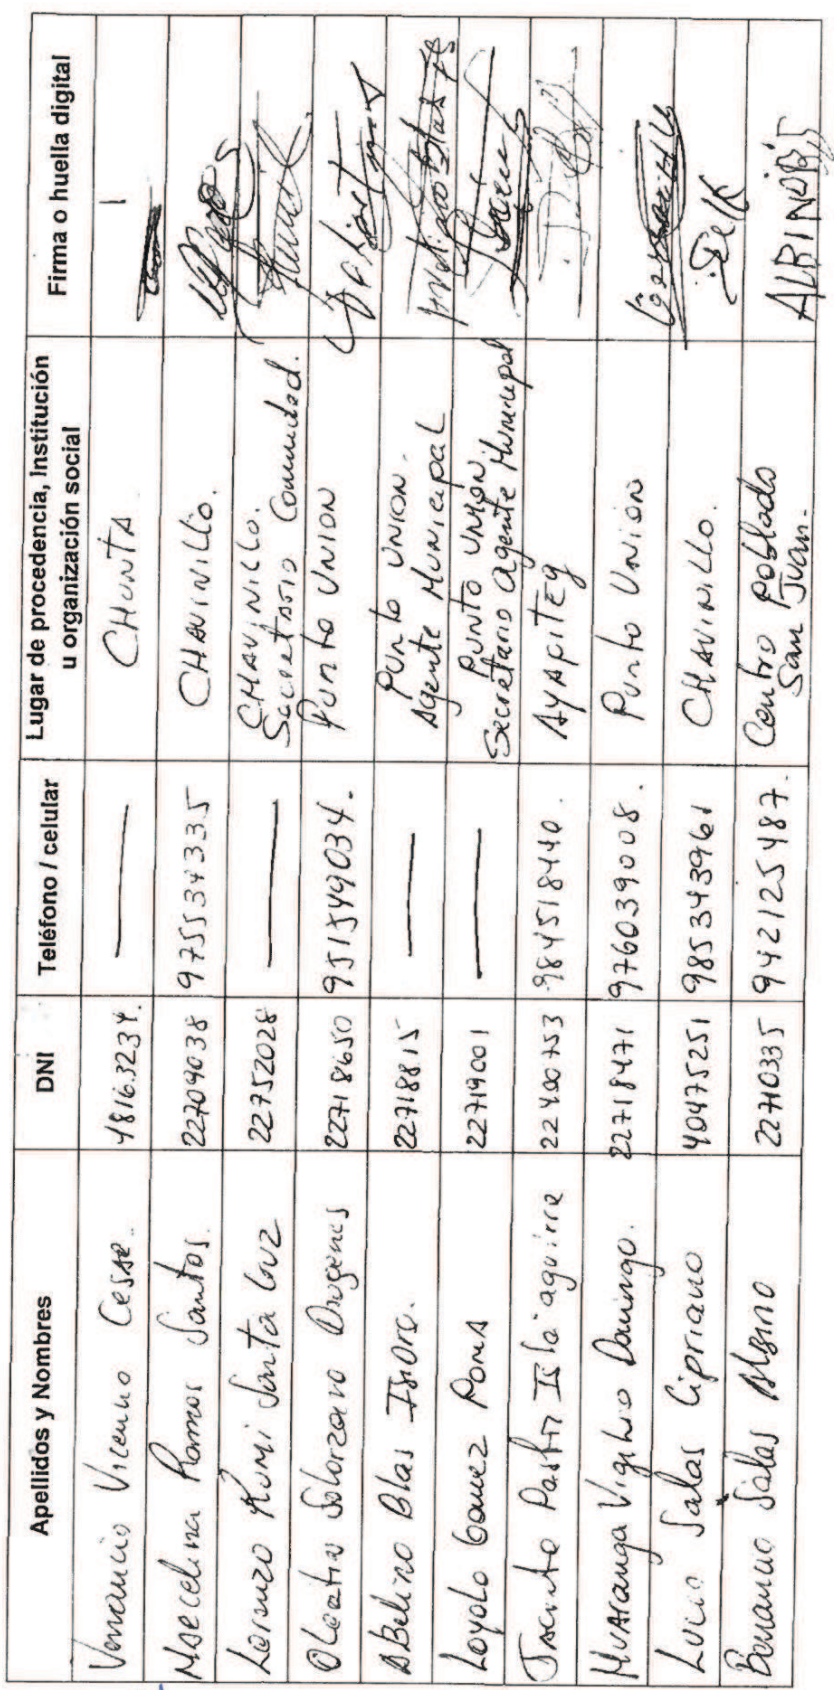 Apellidos y Nombres DNI Teléfono / celular Lugar de procedencia, Institución u organización social Firma o huella digital
Venancio Vicenno Cesar. 48163234. — CHUNTA
Marcelina Ramos Santos. 22709038 975534335 CHAVINILLO.
Lorenzo Rumi Santa Cruz 22752028 — CHAVINILLO. Secretario Comunidad.
Oleatio Solorzano Diogenes 22718650 951549034. Punto UNION
ABelino Blas Isioro. 22718815 — Punto UNION. Agente Municipal
Loyolo Gomez Poma 22719001 — PUNTO UNION Secretario agente Municipal
Jacinto Pastor Isla aguirre 22400753 984518440. AYAPITEG
Huaranga Vigilio Domingo. 22718471 976039008. Punto Union
Lucio Salas Cipriano 40475251 985343961 CHAVINILLO.
Benancio Salas Albino 22710335 942125487. Centro Poblado San Juan. ALBINO